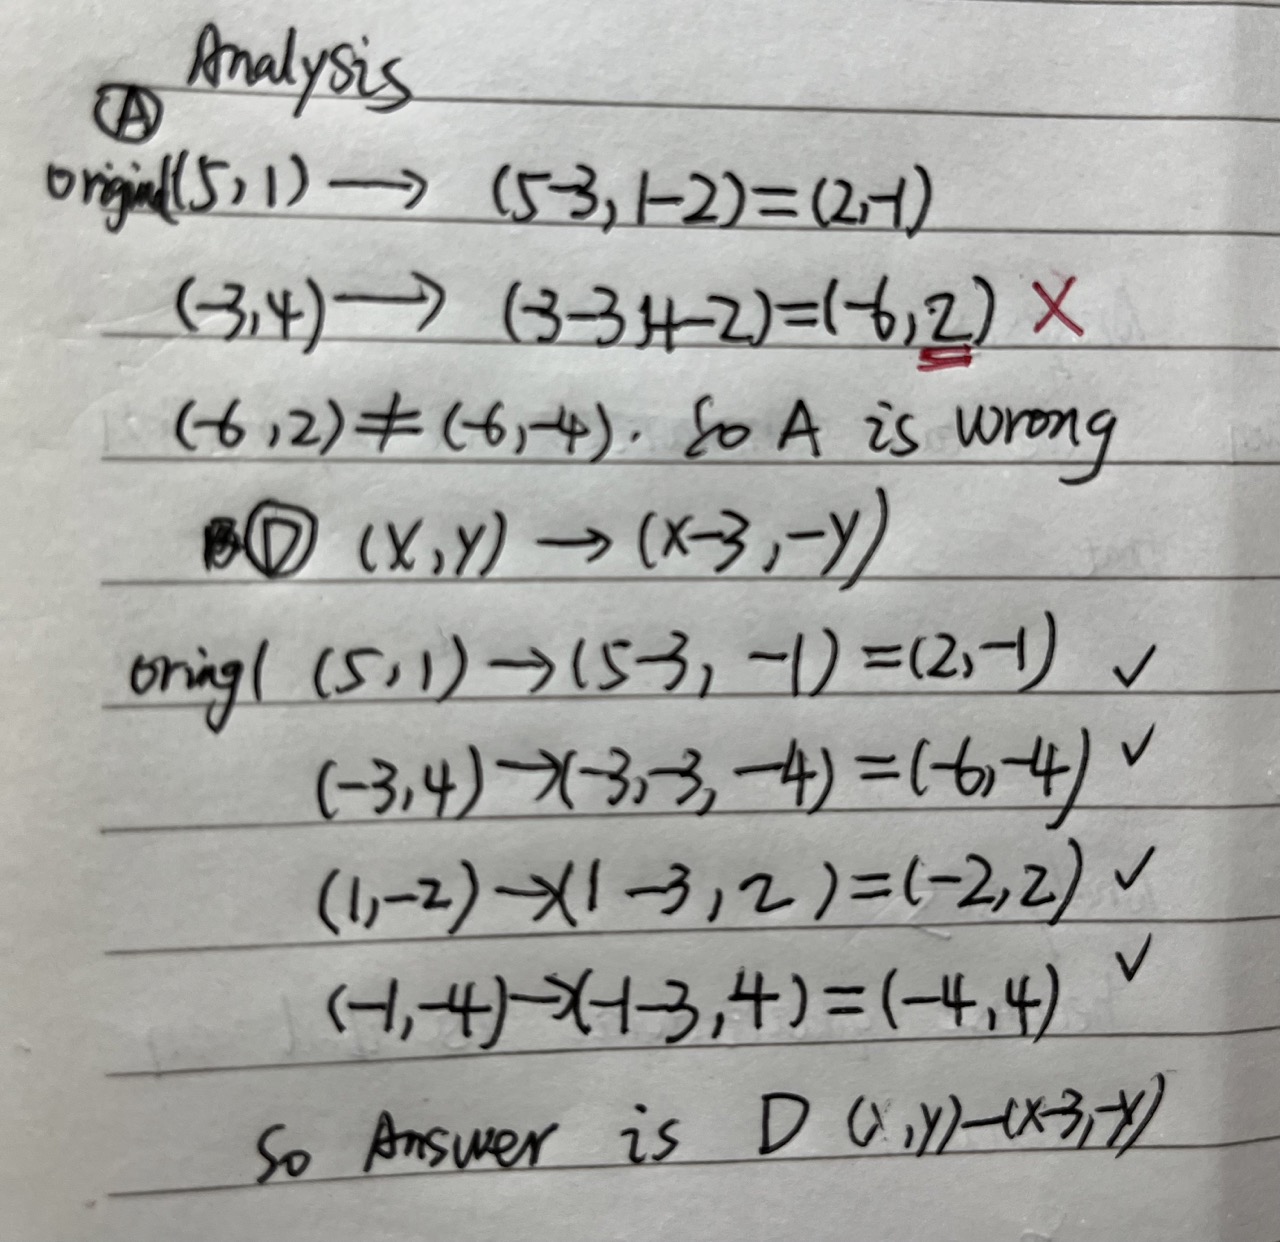 Analysis
Ⓐ
original(5,1) → (5-3, 1-2)=(2,-1)
(-3,4) → (-3-3,4-2)=(-6,2) X
(-6,2)≠(-6,-4). So A is wrong
Ⓓ (x,y) → (x-3,-y)
oringl (5,1) →(5-3, -1)=(2,-1) ✓
(-3,4)→(-3,-3,-4)=(-6,-4) ✓
(1,-2)→(1-3,2)=(-2,2) ✓
(-1,-4)→(-1-3,4)=(-4,4) ✓
So Answer is D (x,y)-(x-3,-y)